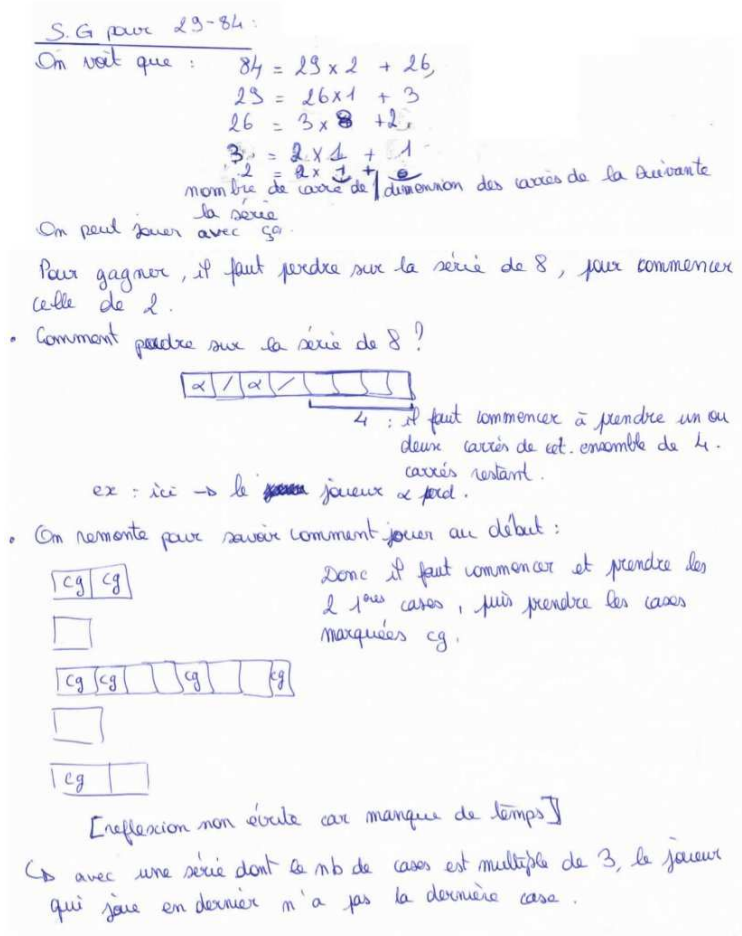 S.G pour 29-84 :
On voit que : 84 = 29 x 2 + 26,
29 = 26x1 + 3
26 = 3 x 8 + 2,
3 = 2 x 1 + 1
2 = 2x 1 + 0
nombre de carré de | dimension des carrés de la suivante
la série
On peut jouer avec ça
Pour gagner, il faut perdre sur la série de 8, pour commencer
celle de 2.
• Comment perdre sur la série de 8 ?
α / α /
4 : il faut commencer à prendre un ou
deux carrés de cet ensemble de 4.
carrés restant.
ex : ici → le joueur α perd.
• On remonte pour savoir comment jouer au début :
cg cg
Donc il faut commencer et prendre les
2 1ères cases, puis prendre les cases
marquées cg.
cg cg cg cg
cg
[reflexion non écrite car manque de temps]
↳ avec une série dont le nb de cases est multiple de 3, le joueur
qui joue en dernier n'a pas la dernière case.